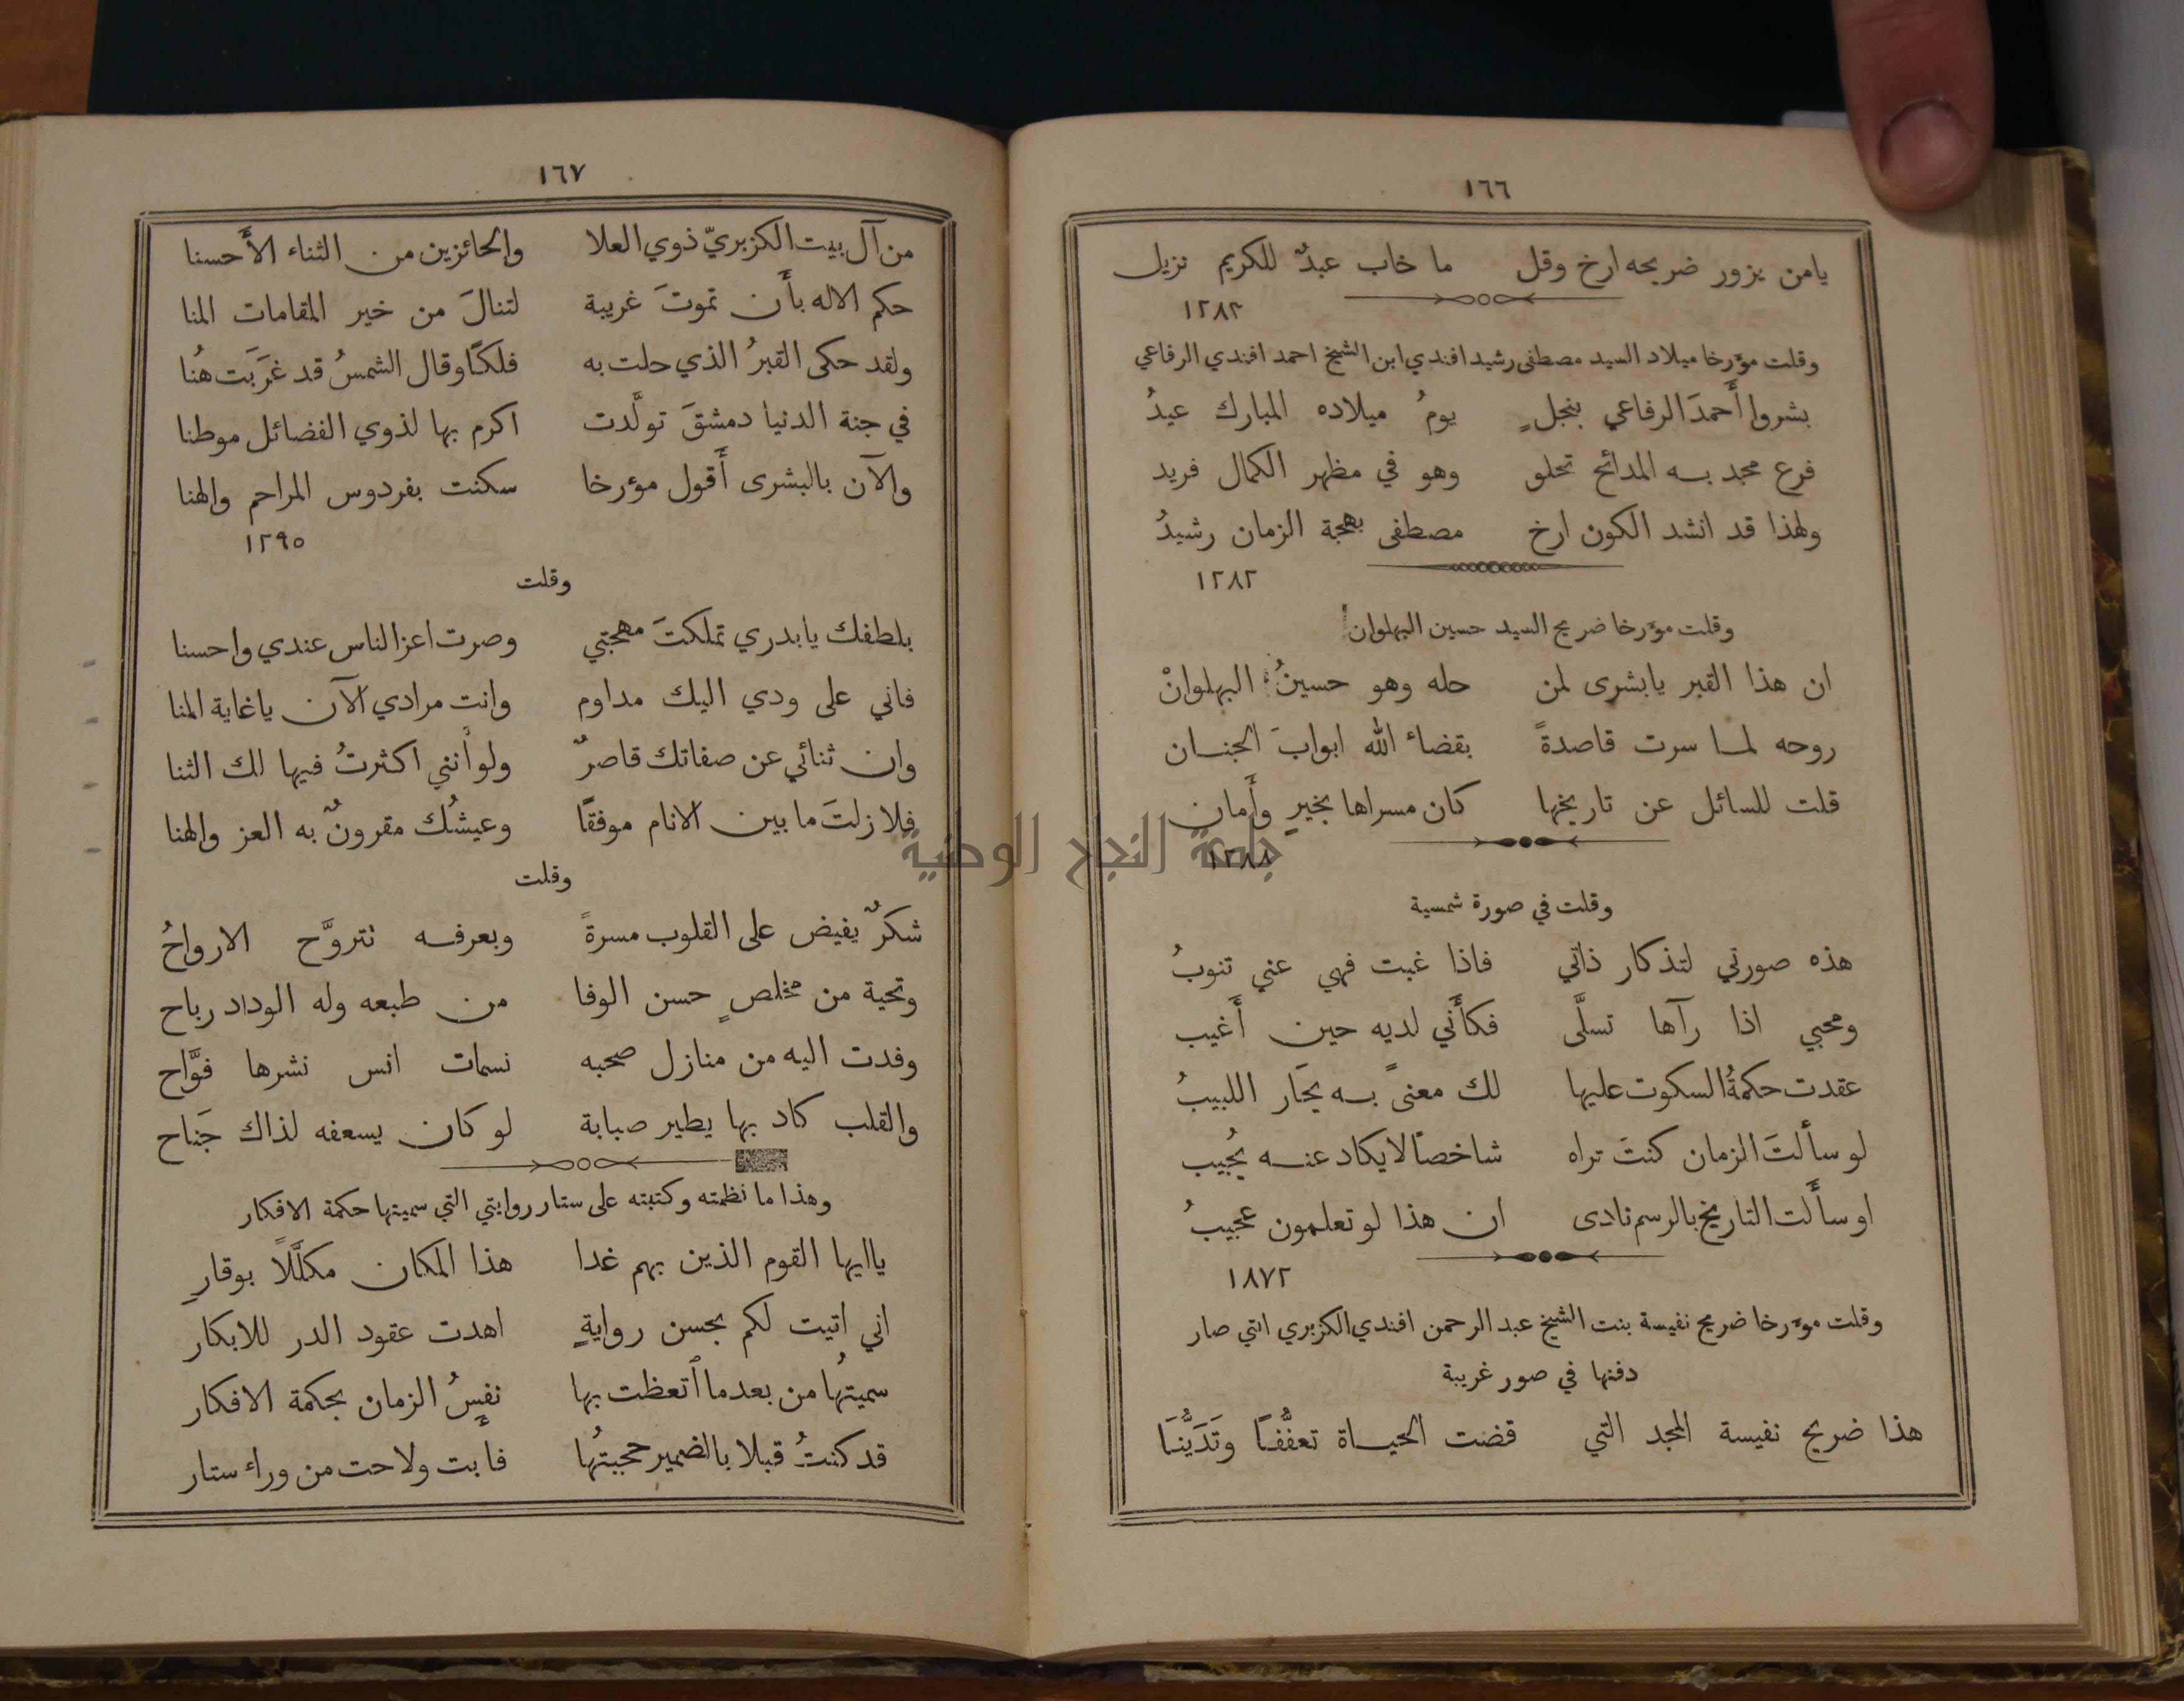 ١٦٦
يامن يزور ضريحه ارخ وقل ما خاب عبدٌ للكريم نزيل
١٢٨٣
وقلت مؤرخا ميلاد السيد مصطفى رشيد افندي ابن الشيخ احمد افندي الرفاعي
بشروا أَحمدَ الرفاعي بنجلٍ يومُ ميلاده المبارك عيدُ
فرع مجد به المدائح تحلو وهو في مظهر الكمال فريد
ولهذا قد انشد الكون ارخ مصطفى بهجة الزمان رشيدُ
١٢٨٢
وقلت مؤرخا ضريح السيد حسين البهلوان
ان هذا القبر يابشرى لمن حله وهو حسينُ البهلوانْ
روحه لما سرت قاصدةً بقضاء الله ابوابَ الجنان
قلت للسائل عن تاريخها كان مسراها بخيرٍ وأَمان
١٢٨٨
وقلت في صورة شمسية
هذه صورتي لتذكار ذاتي فاذا غبت فهي عني تنوبُ
ومحبي اذا رآها تسلَّى فكأَني لديه حين أَغيب
عقدت حكمةُ السكوت عليها لك معنىً به يحَار اللبيبُ
لو سألتَ الزمان كنتَ تراه شاخصًا لايكاد عنه يُجيب
او سأَلت التاريخ بالرسم نادى ان هذا لو تعلمون عجيبُ
١٨٧٢
وقلت مؤرخا ضريح نفيسة بنت الشيخ عبد الرحمن افندي الكزبري التي صار
دفنها في صور غريبة
هذا ضريح نفيسة المجد التي قضت الحياة تعفُّفًا وتَدَيُّنَا
١٦٧
من آل بيت الكزبريّ ذوي العلا والحائزين من الثناء الأَحسنا
حكم الاله بأَن تموتَ غريبة لتنالَ من خير المقامات المنا
ولقد حكى القبرُ الذي حلت به فلكًا وقال الشمسُ قد غرَبَت هنُا
في جنة الدنيا دمشقَ تولَّدت اكرم بها لذوي الفضائل موطنا
والآن بالبشرى أَقول مؤرخا سكنت بفردوس المراحم والهنا
١٢٩٥
وقلت
بلطفك يابدري تملكتَ مهجتي وصرت اعز الناس عندي واحسنا
فاني على ودي اليك مداوم وانت مرادي الآن ياغاية المنا
وان ثنائي عن صفاتك قاصرٌ ولو أنني اكثرتُ فيها لك الثنا
فلا زلتَ ما بين الانام موفقًا وعيشُك مقرونٌ به العز والهنا
وقلت
شكرٌ يفيض على القلوب مسرةً وبعرفه تتروَّح الارواحُ
وتحية من مخلصٍ حسن الوفا من طبعه وله الوداد رباح
وفدت اليه من منازل صحبه نسمات انس نشرها فوَّاح
والقلب كاد بها يطير صبابة لو كان يسعفه لذاك جَناح
وهذا ما نظمته وكتبته على ستار روايتي التي سميتها حكمة الافكار
ياايها القوم الذين بهم غدا هذا المكان مكلَّلاً بوقارِ
اني اتيت لكم بحسن روايةٍ اهدت عقود الدر للابكار
سميتهُا من بعدما اتعظت بها نفسُ الزمان بحكمة الافكار
قد كنتُ قبلا بالضمير حجبتهُا فأبت ولاحت من وراء ستار
جامعة النجاح الوطنية